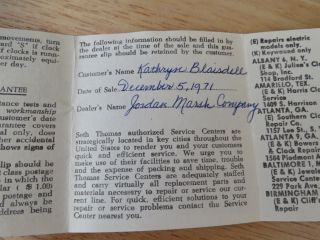 movements, turn
and "S" if clock
if clocks is fast.
clocks is rotated
ing is equal-
day.
ANTEE
ance tests and
workmanship
of this
owner. does
other accidental
shows signs of
slip should be
class postage
in which to
lar ($ 1.00)
and always
be sure
address
being
The following information should be filled in by
the dealer at the time of the sale and this
guarantee slip should be enclosed if clock is
returned for repair.
Customer's Name Kathryn Blaisdell
Date of Sale December 5, 1971
Dealer's Name Jordan Marsh Company
Seth Thomas authorized Service Centers are
strategically located in key cities throughout the
United States to render you and your customers
quick and efficient service. We urge you to make
use of their facilities to save time, trouble and
the expense of packing and shipping. Seth
Thomas Service Centers are adequately staffed
and carry virtually all replacement parts and
materials necessary to repair or service our cur-
rent line. For quick, efficient solutions to your
repair or service problems contact the Service
Center nearest you.
(E) Repairs electric
models only.
(K) Keywound only
ALBANY 6, N. Y.
(E & K) Julien's Clock
Shop, Inc.
AMARILLO, TEX.
(E & K)
Service
1409 S. Harrison
ATLANTA, GA.
(E) Southern Clock
Repair Co.
1157 Lee St.,
ATLANTA, GA.
(K) Clock
Repair
1564 Piedmont
BALTIMORE
(E & K)
Service Center
229 Park Ave.
BIRMINGHAM
(E & K) Cliff's
Repair